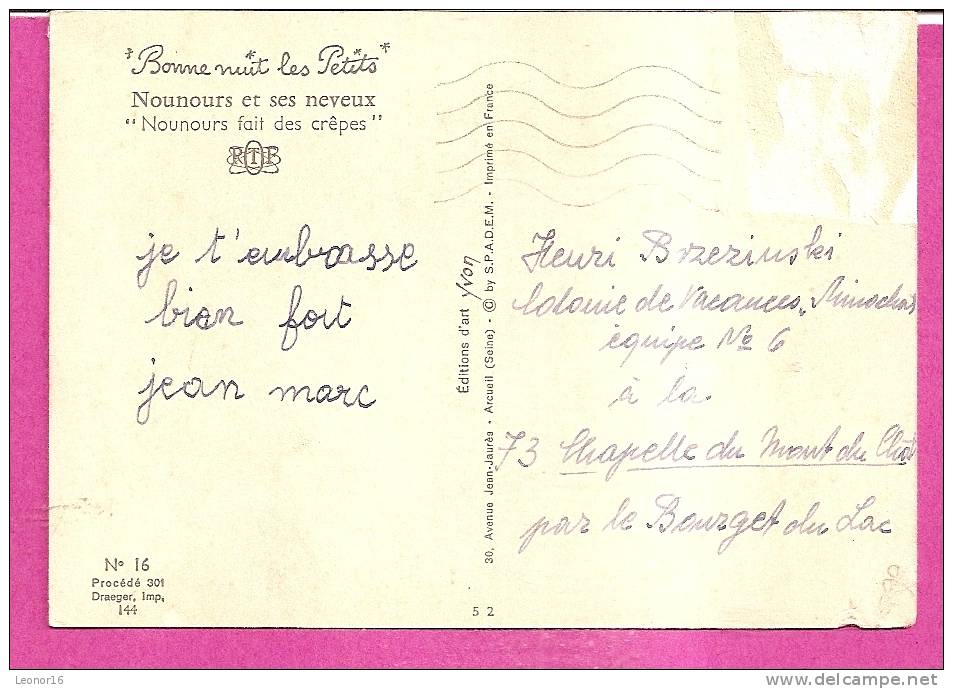 *Bonne nuit les Petits*
Nounours et ses neveux
"Nounours fait des crêpes"
RTF
je t'embrasse
bien fort
jean marc
N° 16
Procédé 301
Draeger, Imp.
144
Editions d'art Yvon
30, Avenue Jean-Jaurès - Arcueil (Seine) - © by S.P.A.D.E.M. - Imprimé en France
52
Henri Brzezinski
Colonie de Vacances
équipe No 6
à la
73 Chapelle du Mont du Chat
par le Bourget du Lac
Leonor16
delcampe.net